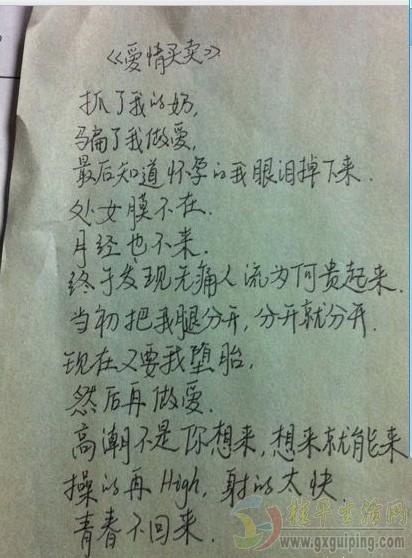 《爱情买卖》
抓了我的奶，
骗了我做爱，
最后知道怀孕的我眼泪掉下来．
处女膜不在．
月经也不来．
终于发现无痛人流为何贵起来．
当初把我腿分开，分开就分开．
现在又要我堕胎，
然后再做爱．
高潮不是你想来，想来就能来
操的再High，射的太快．
青春不回来．
桂平生活网
www.gxguiping.com